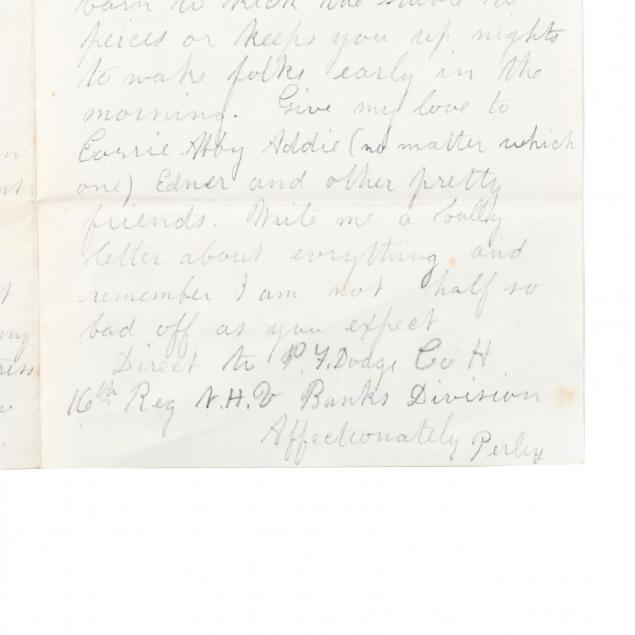 barn to kick the stable to
peices or keeps you up nights
to wake folks early in the
morning. Give my love to
Carrie Abby Addie (no matter which
one) Edner and other pretty
friends. Write me a bully
letter about everything and
remember I am not half so
bad off as you expect
Direct to P. F. Dodge Co H
16th Reg N.H.V Banks Division
Affectionately Perley